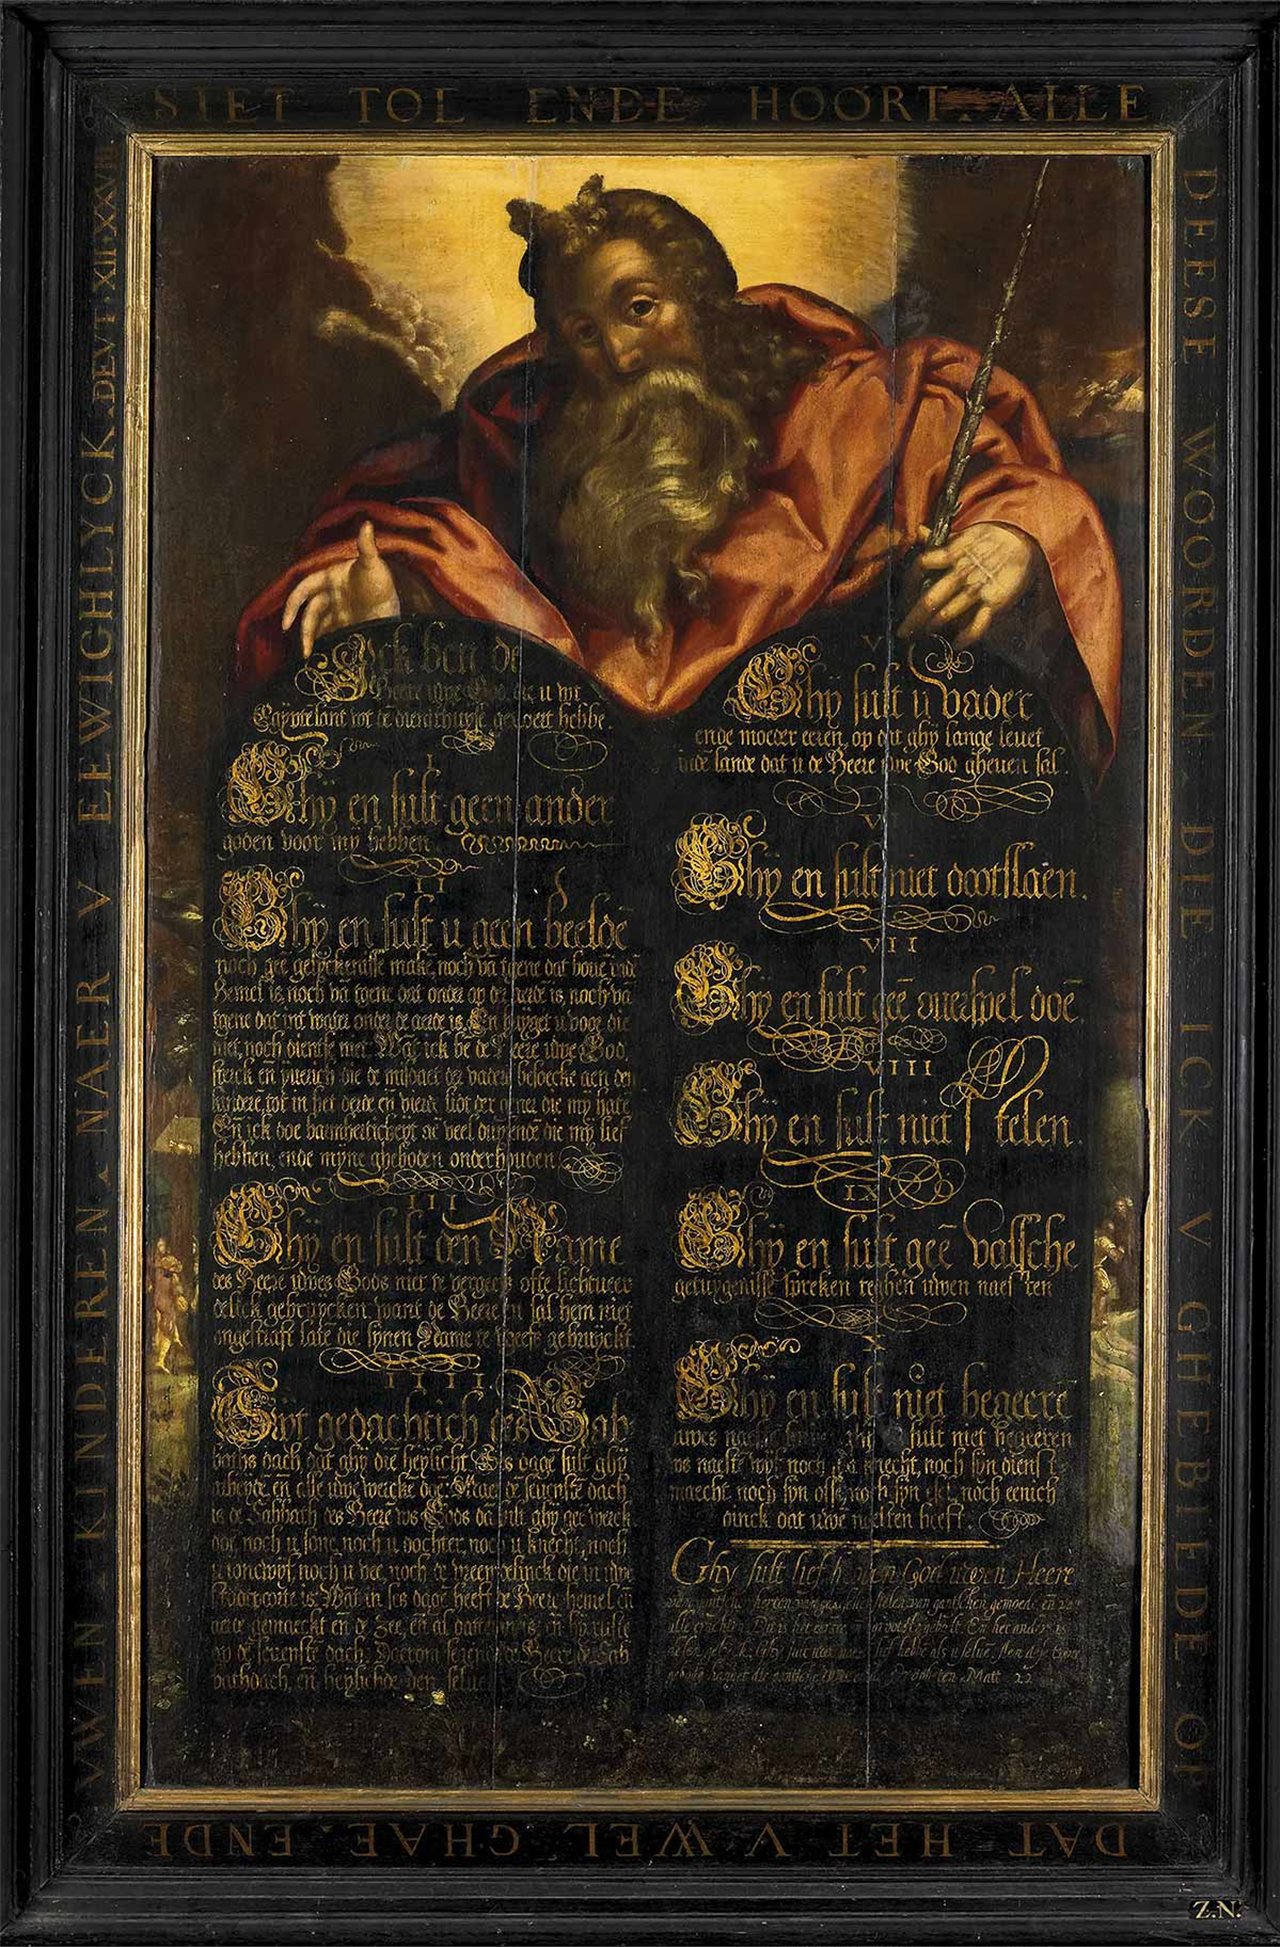 SIET TOE ENDE HOORT ALLE
DEESE WOORDEN DIE ICK V GHEBIEDE OP
DAT HET V WEL GHAE ENDE
VWEN KINDEREN NAER V EEWIGHLYCK DEVT XII XXVIII
Ick ben de
Heere uwe God die u wt
Egypte lant wt te diensthuyse gevoert hebbe
I
Ghy en sult geen ander
goden voor my hebben
II
Ghy en sult u geen beeldē
noch
Hemel is, noch vā tgene dat onder op der aerde is, noch vā
tgene dat int water onder de aerde is. En buyget u voor die
niet, noch dientse niet. Wāt ick bē de Heere uwe God
sterck en yverich die de misdaet der vaders besoecke aen den
kindere, tot in het derde en vierde lidt der gener die my hatē
En ick doe barmherticheyt aē veel duysendē die my lief
hebben, ende myne gheboden onderhouden
III
Ghy en sult den Name
des Heere uwes Gods niet te vergeefs ofte lichtveer
delick gebruycken want de Heere en sal hem niet
ongestraft latē die synen Name te vergeefs gebruyckt
IIII
Syt gedachtich des Sab
baths dach dat ghy die heylicht Ses dagē sult ghy
arbeydē, eñ alle uwe wercke doē. Maer de sevenste dach
is de Sabbath des Heerē uws Gods dā sult ghy geē werck
doē noch u sone, noch u dochter, noch u knecht, noch
noch u vee, noch de vreemdelinck die in uwe
stadtpoorte is. Wāt in ses dagē heeft de Heere hemel eñ
aerde gemaeckt eñ de Zee, eñ al datter in is, eñ hy ruste
op de sevenste dach. Daerom segende de Heere de Sab
bathdach, eñ heylichde den selve
V
Ghy sult u vader
ende moeder eeren, op dat ghy lange levet
inde lande dat u de Heere uwe God gheven sal
VI
Ghy en sult niet dootslaen.
VII
Ghy en sult geē overspel doē
VIII
Ghy en sult niet stelen.
IX
Ghy en sult geē valssche
getuygenisse spreken teghen uwen naesten
X
Ghy en sult niet begeerē
uwes naesten sult niet begeeren
uws naesten wyf noch syn knecht, noch syn dienst
maecht, noch syn osse, noch syn esel, noch eenich
dinck dat uwe naesten heeft.
Ghy sult lief hebben God uwen Heere
van gantscher herten van gantscher sielen van gantschen gemoede eñ van
alle crachten. Dit is het eerste en grootste gebodt. En het ander is
desen gelyck. Ghy sult uwen naesten lief hebben als u selve. Aen dese twee
geboden hanget die gantsche Wet ende Propheten Matt 22
Z.N.